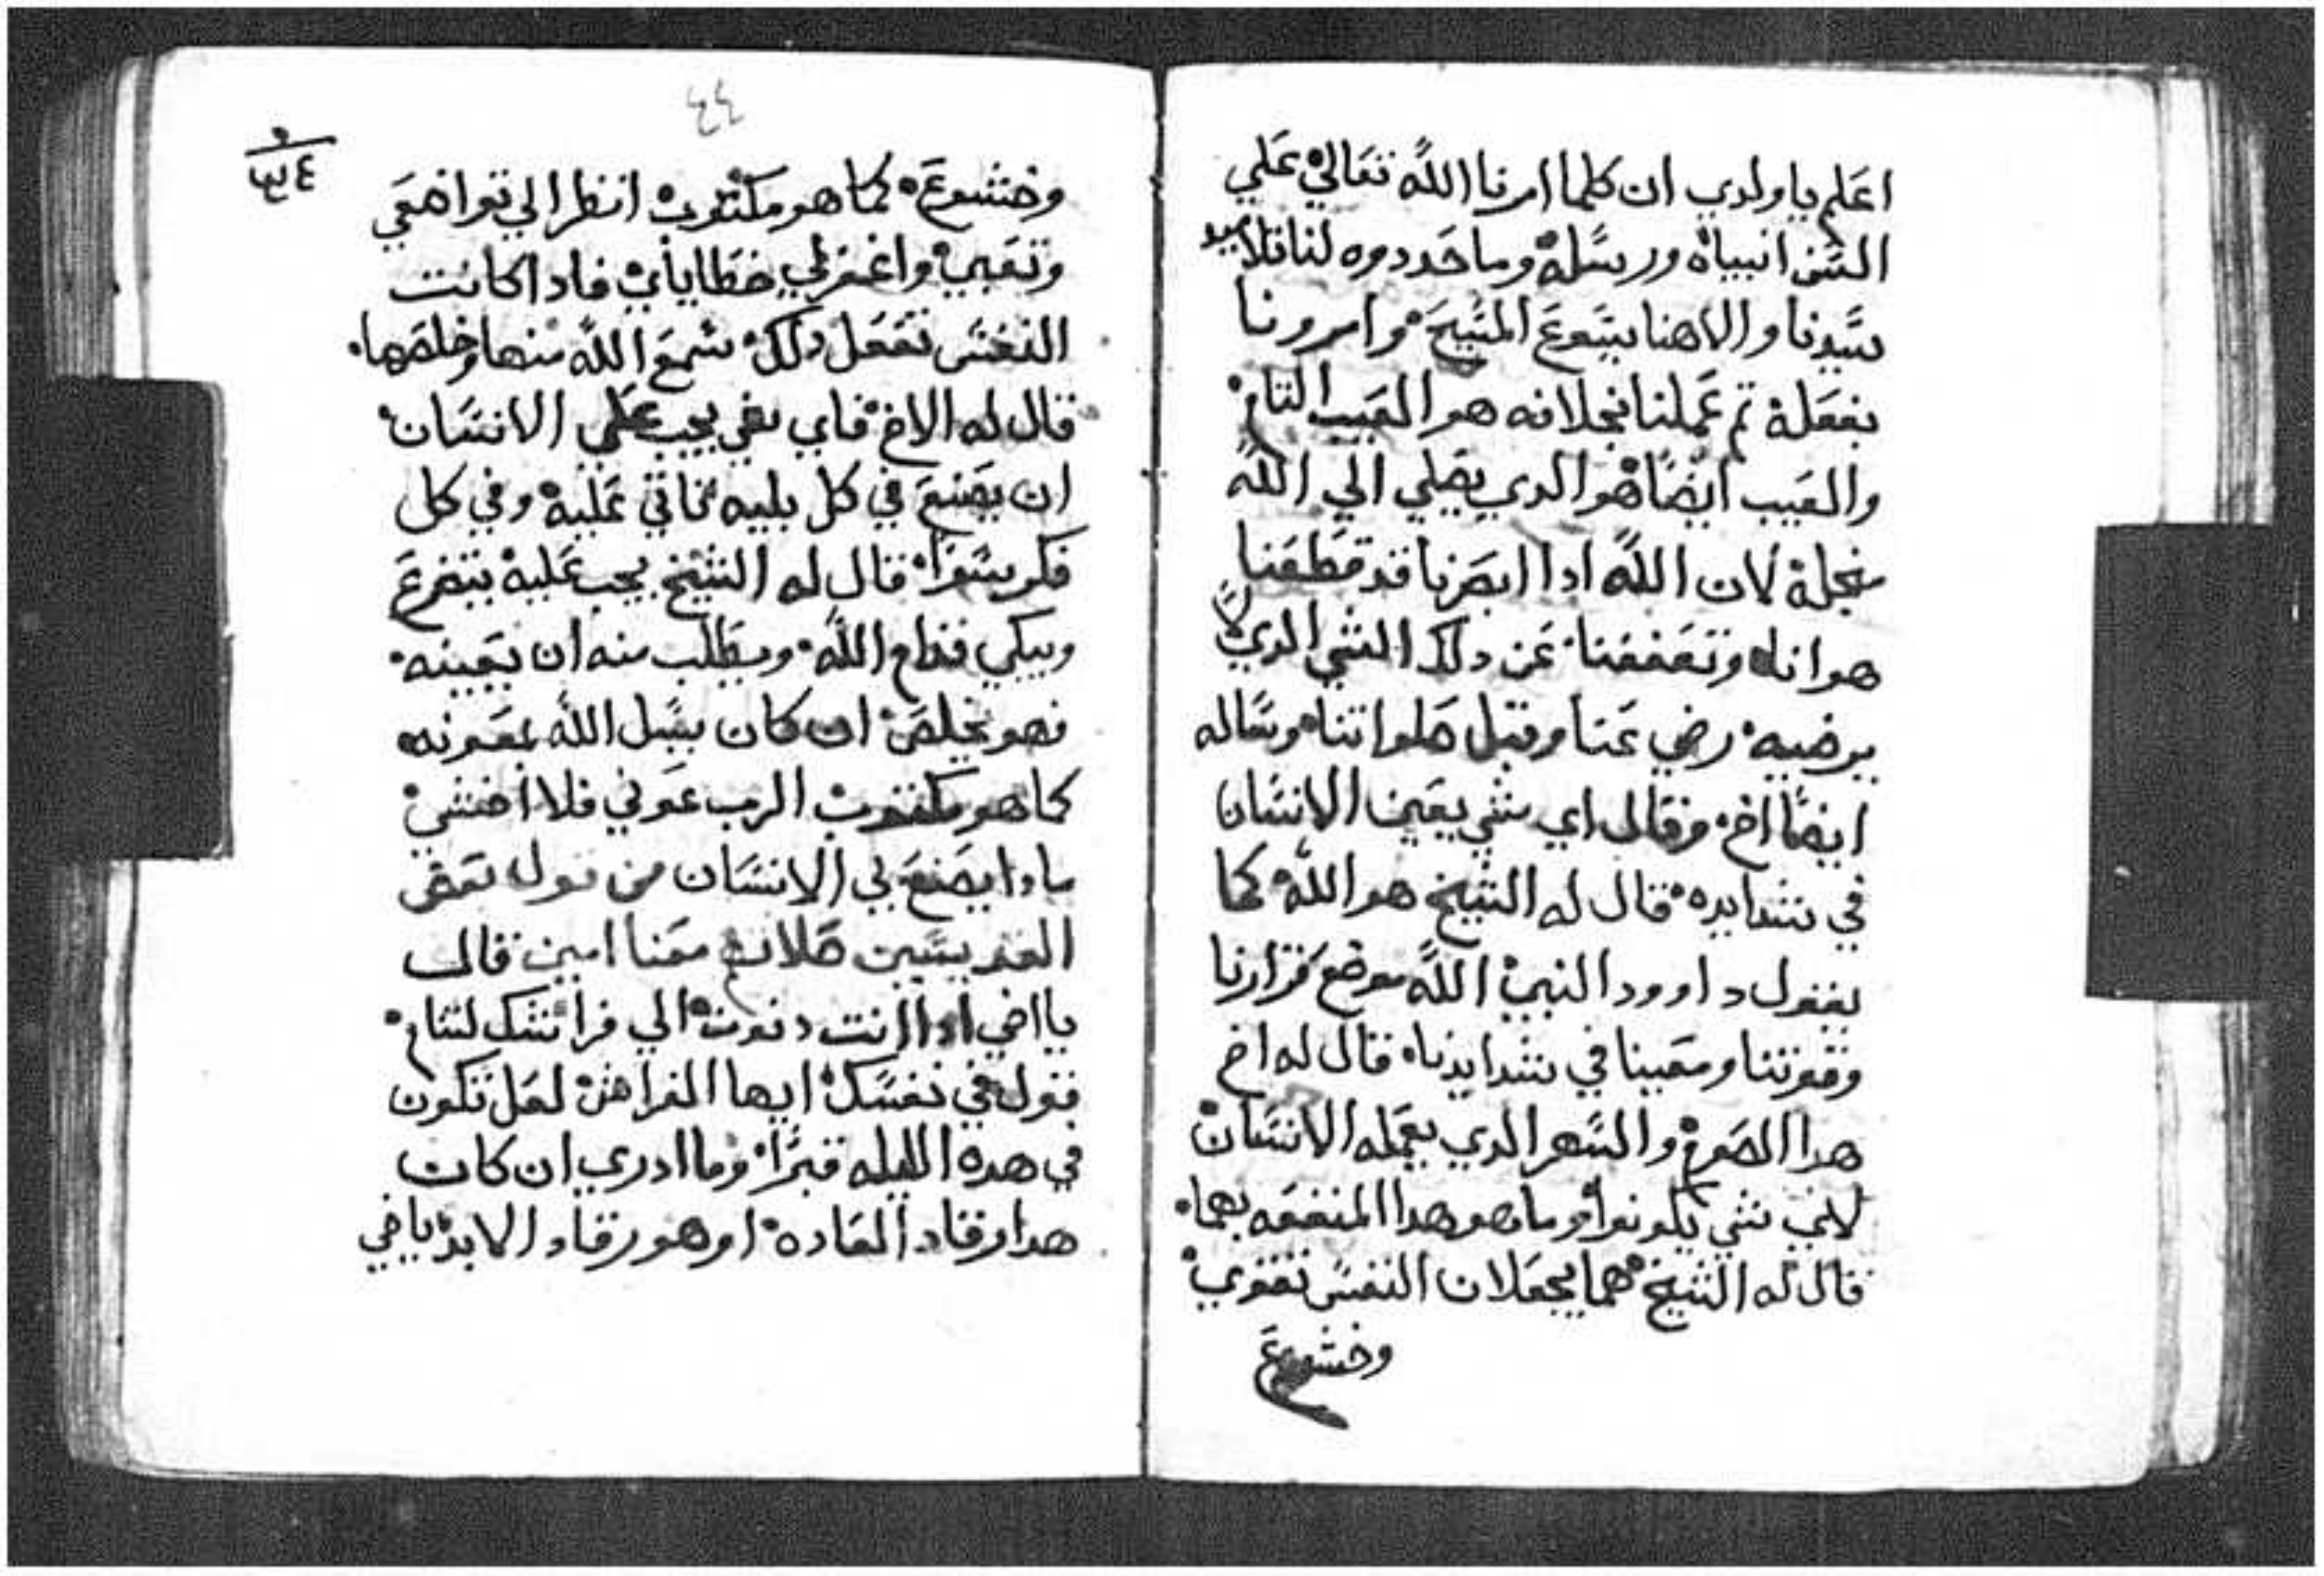 اعلم يا ولدي ان كلما امرنا الله تعالي علي
السن انبياه ورسله وما حددوه لنا تلاميد
سيدنا والاهنا يسوع المسيح وامرونا
بفعله تم عملنا بخلافه هو العيب التام
والعيب ايضًا هو الدي يصلي الي الله
بخجله لان الله ادا ابصرنا قد قطعنا
هوانا وتعففنا عن دلك الشي الدي لا
يرضيه رضي عنا وقبل صلواتنا وساله
ايضًا اخ وقال اي شي يعين الانسان
في شدايده قال له الشيخ هو الله كما
يقول داوود النبي الله موضع قرارنا
وقوتنا ومعيننا في شدايدنا قال له اخ
هدا الصوم والسهر الدي يعمله الانسان
لاي شي يكونوا وما هو هدا المنفعه بهما
قال له الشيخ هما يجعلان النفس تقوي
وخشوع
٤٤
٣٤
وخشوع كما هو مكتوب انظر الي تواضعي
وتعبي واغفر لي خطاياي فادا كانت
النفس تفعل دلك سمع الله منها وخلصها
قال له الاخ فاي شي يجب علي الانسان
ان يصنع في كل بليه تاتي عليه وفي كل
فكر سوا قال له الشيخ يجب عليه يتضرع
ويبكي قدام الله ويطلب منه ان يعينه
فهو يخلص ان كان يسل الله بمعونه
كما هو مكتوب الرب عوني فلا اخشي
مادا يصنع بي الانسان من قول بعض
القديسين صلاته معنا امين قال
يا اخي ادا انت دنوت الي فراشك لتنام
قول في نفسك ايها الفراش لعل تكون
في هده الليله قبرًا وما ادري ان كان
هدا رقاد العاده او هو رقاد الابد يا اخي